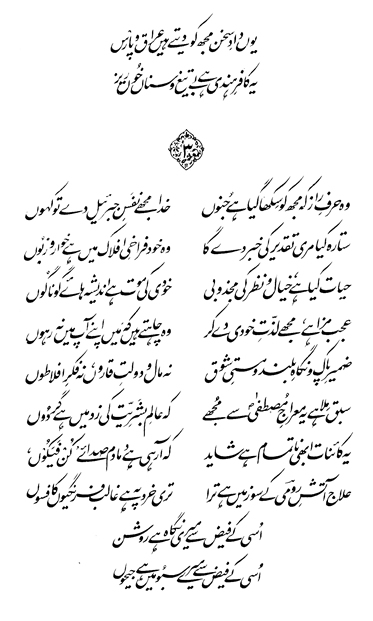 یوں دادِ سخن مجھ کو دیتے ہیں عراق و پارس
یہ کافرِ ہندی ہے بے تیغ و سناں خوں ریز
۳
وہ حرفِ راز کہ مجھ کو سکھا گیا ہے جنوں خدا مجھے نفسِ جبرئیل دے تو کہوں
ستارہ کیا مری تقدیر کی خبر دے گا وہ خود فراخیِ افلاک میں ہے خوار و زبوں
حیات کیا ہے، خیال و نظر کی مجذوبی خودی کی موت ہے اندیشہ ہائے گوناگوں
عجب مزا ہے، مجھے لذتِ خودی دے کر وہ چاہتے ہیں کہ میں اپنے آپ میں نہ رہوں
ضمیرِ پاک و نگاہِ بلند و مستیِ شوق نہ مال و دولتِ قاروں، نہ فکرِ افلاطوں
سبق ملا ہے یہ معراجِ مصطفیٰؐ سے مجھے کہ عالمِ بشریت کی زد میں ہے گردوں
یہ کائنات ابھی ناتمام ہے شاید کہ آ رہی ہے دمادم صدائے 'کن فیکوں'
علاج آتشِ رومی کے سوز میں ہے ترا تری خرد پہ ہے غالب فرنگیوں کا فسوں
اسی کے فیض سے میری نگاہ ہے روشن
اسی کے فیض سے میرے سبو میں ہے جیحوں